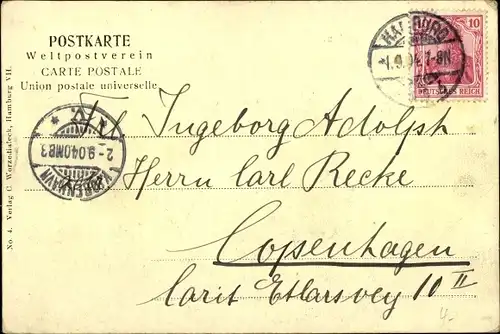 POSTKARTE
Weltpostverein
CARTE POSTALE
Union postale universelle
HAMBURG
1.9.04.7-8N
10
DEUTSCHES REICH
Frl. Ingeborg Adolph
KJØBENHAVN
2-9.04.OMB3
Herrn Carl Recke
Copenhagen
Carit Etlarsvey 10 II
No. 4. Verlag C. Worzedialeck, Hamburg VII.